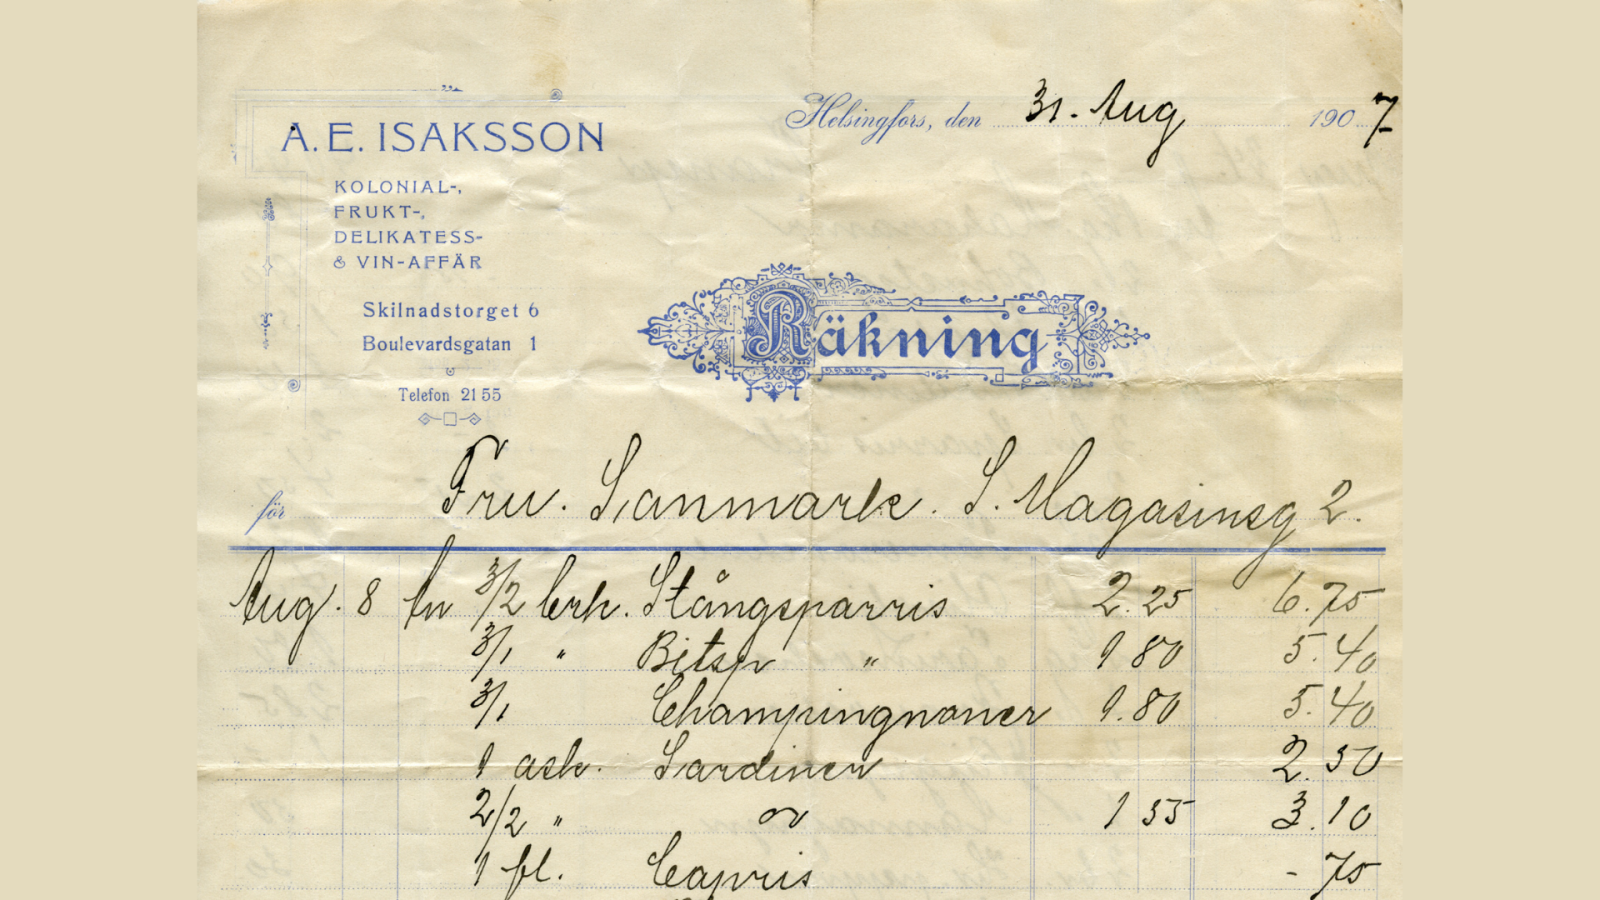 Helsingfors, den 31. Aug 1907
A. E. ISAKSSON
KOLONIAL-,
FRUKT-,
DELIKATESS-
& VIN-AFFÄR
Skilnadstorget 6
Boulevardsgatan 1
Telefon 21 55
Räkning
för Fru. Sanmark. S. Magasinsg 2.
Aug. 8 3/2 brk. Stångsparris 2.25 6.75
3/1 " Bitsp " 1 80 5.40
3/1 Champingnoner 1.80 5.40
1 ask. Sardiner 2.50
2/2 " 1 55 3.10
1 fl. Capris - 75